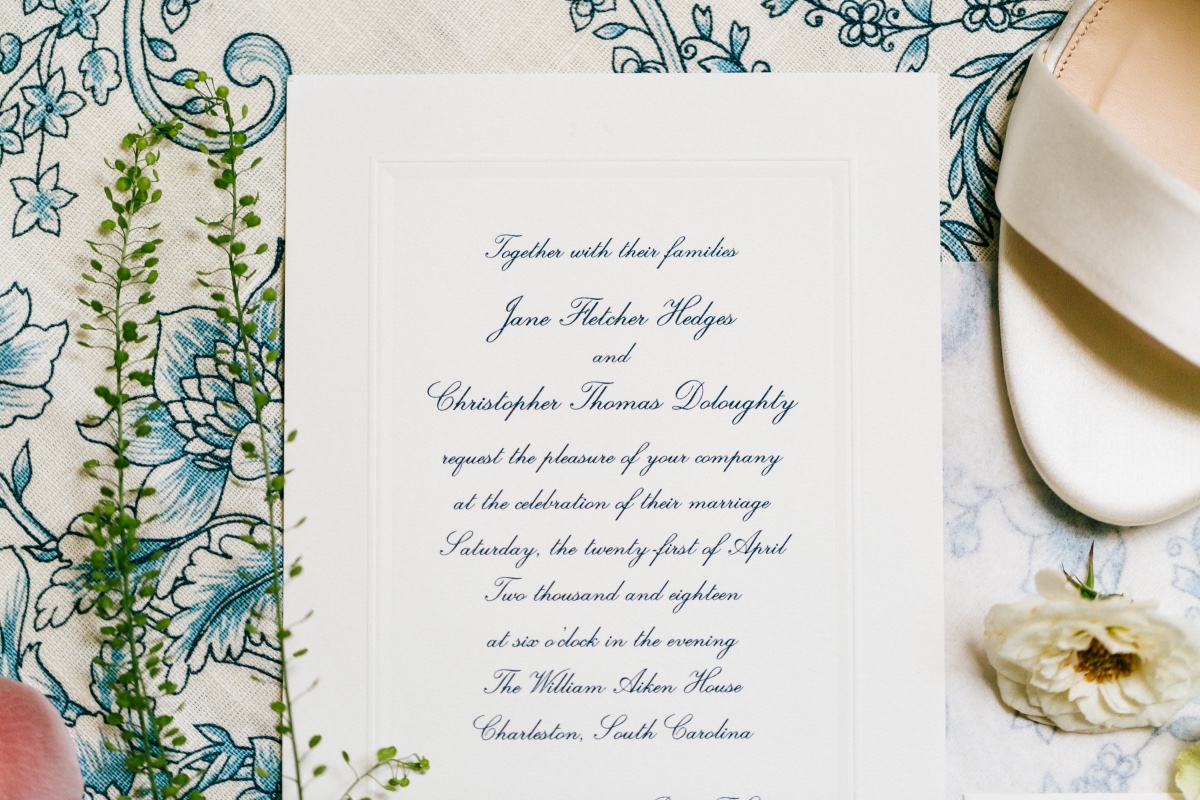 Together with their families
Jane Fletcher Hedges
and
Christopher Thomas Doloughty
request the pleasure of your company
at the celebration of their marriage
Saturday, the twenty-first of April
Two thousand and eighteen
at six o'clock in the evening
The William Aiken House
Charleston, South Carolina